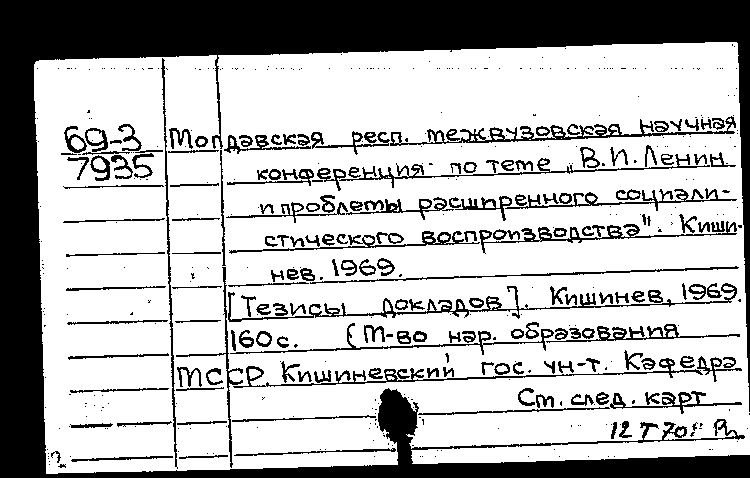 69-3 Молдавская респ. межвузовская научная
7935 конференция по теме „В.И. Ленин
и проблемы расширенного социали-
стического воспроизводства". Киши-
нев. 1969.
[Тезисы докладов]. Кишинев, 1969.
160 с. (М-во нар. образования
МССР. Кишиневский гос. ун-т. Кафедра
См. след. карт
12 Т 70